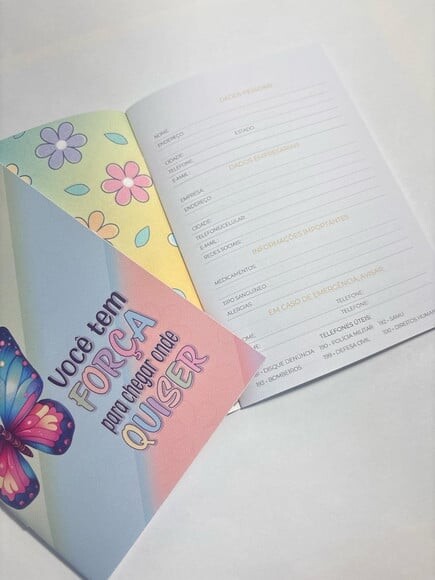 Você tem
FORÇA
para chegar onde
QUISER
DADOS PESSOAIS
NOME:
ENDEREÇO:
ESTADO:
CIDADE:
TELEFONE:
E-MAIL:
DADOS EMPRESARIAIS
EMPRESA:
ENDEREÇO:
CIDADE:
TELEFONE/CELULAR:
E-MAIL:
REDES SOCIAIS:
INFORMAÇÕES IMPORTANTES
MEDICAMENTOS:
TIPO SANGUÍNEO:
ALERGIAS:
EM CASO DE EMERGÊNCIA, AVISAR:
TELEFONE:
TELEFONE:
TELEFONES ÚTEIS:
- DISQUE DENÚNCIA 190 - POLÍCIA MILITAR 192 - SAMU
193 - BOMBEIROS 199 - DEFESA CIVIL 100 - DIREITOS